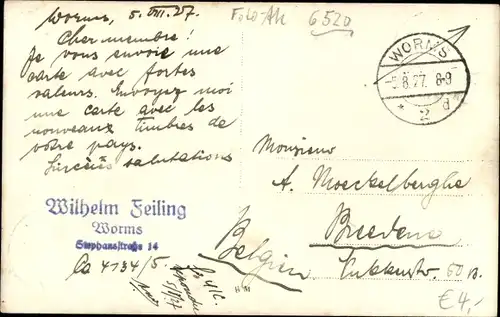 Worms, 5. VIII. 27.
Cher membre!
Je vous envoie une
carte avec fortes
valeurs. Envoyez moi
une carte avec les
nouveaux timbres de
votre pays.
Sincères salutations
Wilhelm Feiling
Worms
Stephansstraße 14
Ca 4134/5.
Foto-AK 6520
WORMS
5.8.27. 8-9
* 2 d
Monsieur
A. Moeckelberghe
Breedene
Belgien.
60 B.
€4,-